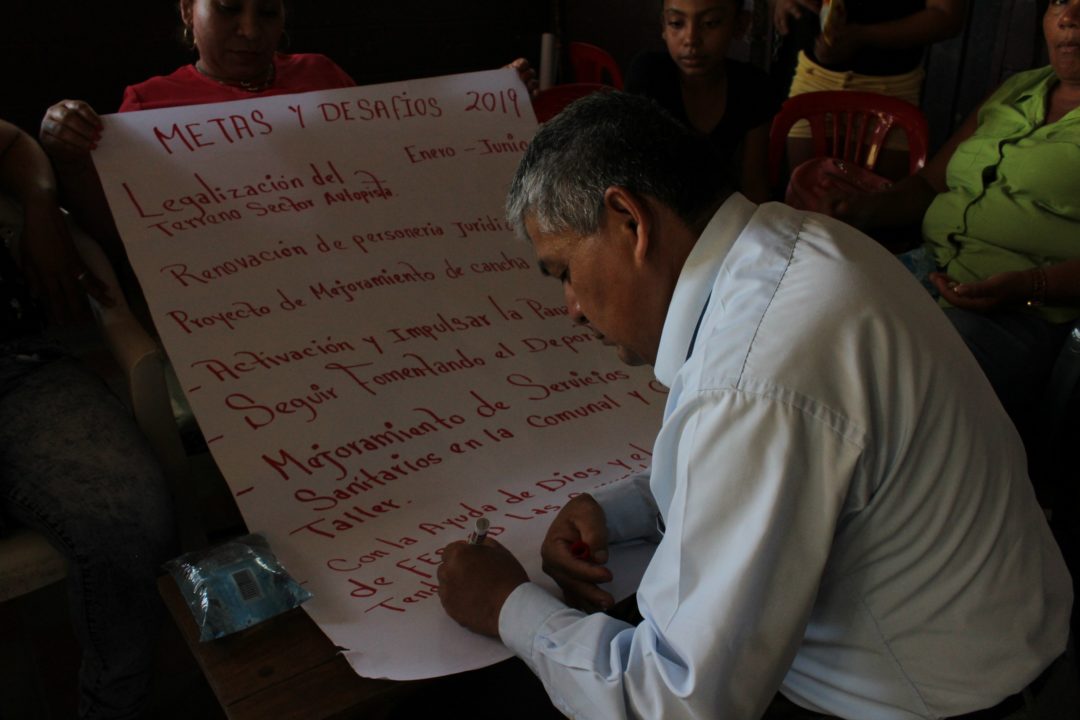 METAS Y DESAFÍOS 2019
Enero - Junio
Legalización del
Terreno Sector Autopista
Renovación de personería
Proyecto de Mejoramiento de cancha
- Activación y Impulsar la
- Seguir Fomentando el
- Mejoramiento de Servicios
Sanitarios en la Comunal y
Taller.
Con la Ayuda de Dios y el
de Las